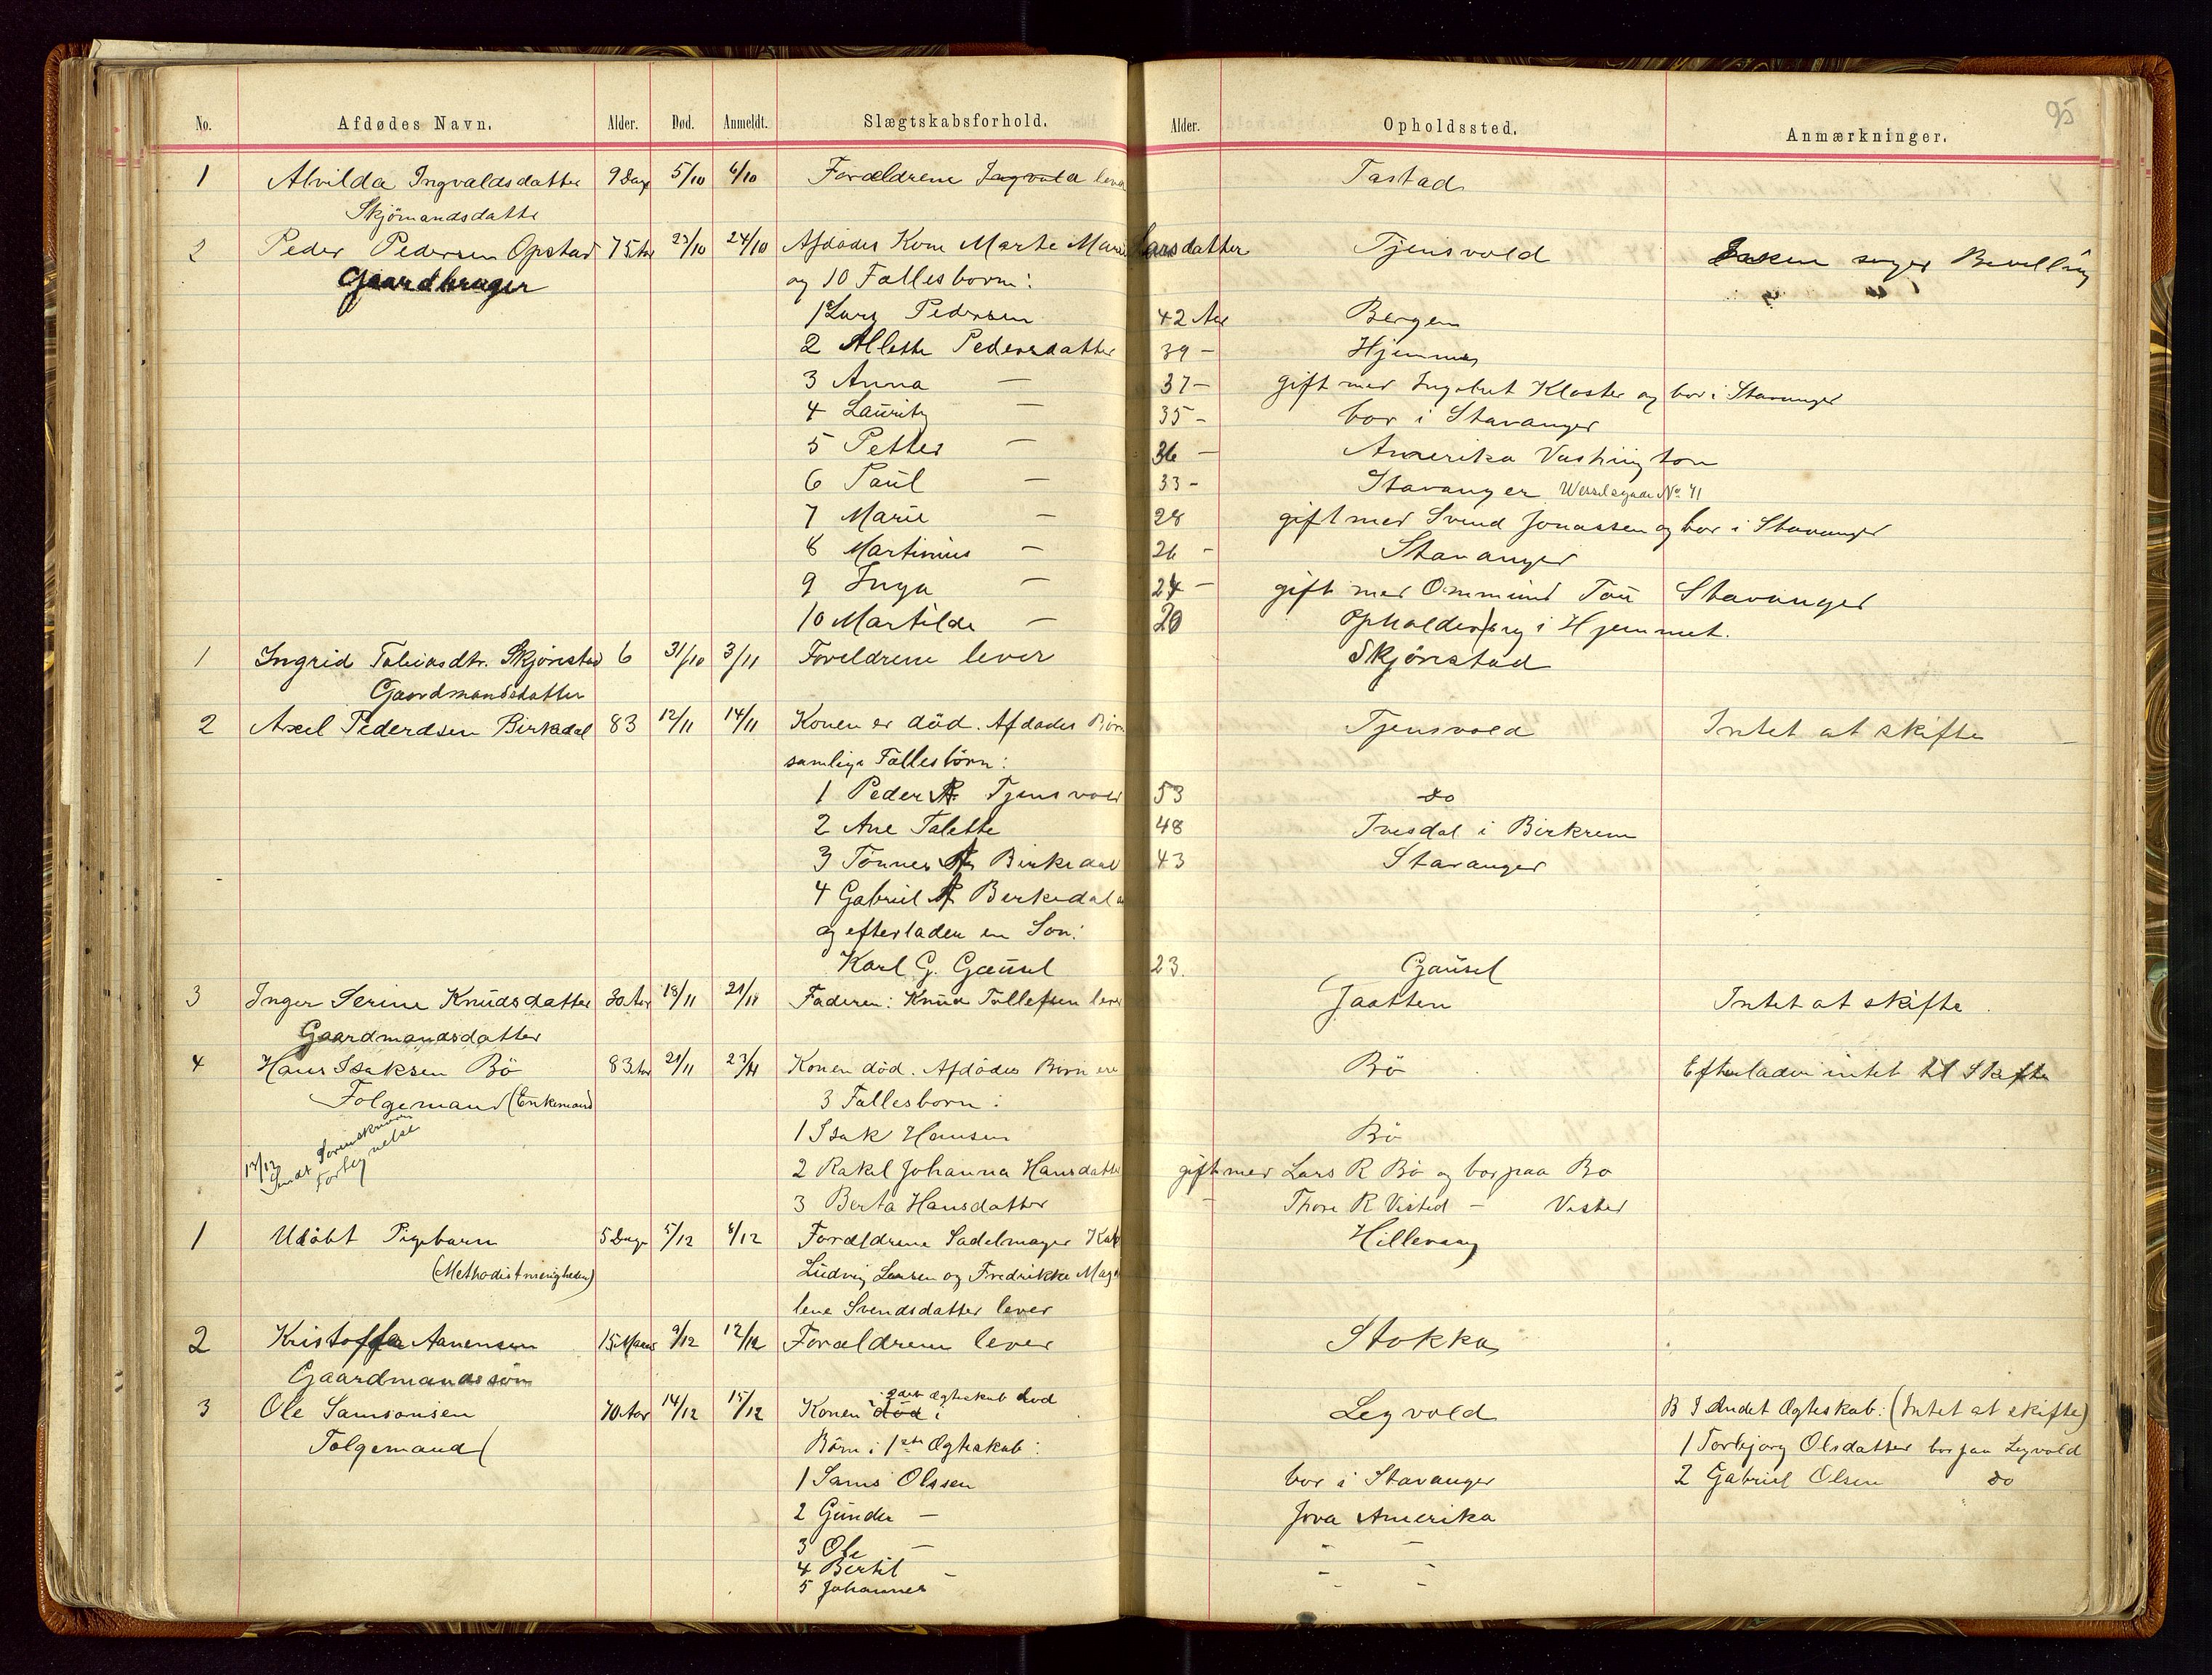 95
No. Afdødes Navn. Alder. Død. Anmeldt. Slægtskabsforhold. Alder. Opholdssted. Anmærkninger.
1 Alvilda Ingvaldsdatter 9 Dage 5/10 6/10 Forældrene Ingvald lever Tastad
Skjömandsdatte
2 Peder Pedersen Opstad 75 Aar 23/10 24/10 Afdødes Kone Marte Marie Larsdatter Tjensvold Enken søger Bevilling
Gaardbruger og 10 Fællesbørn:
1 Lars Pedersen 42 Aar Bergen
2 Allette Pedersdatter 39 - Hjemme
3 Anna — 37 - gift med Ingebret Kloster og bor i Stavanger
4 Lauritz — 35 - bor i Stavanger
5 Petter — 36 — Amerika Vashington
6 Paul — 33 - Stavanger Wesselsgade No 41
7 Marie — 28 gift med Svend Jonassen og bor i Stavanger
8 Martinius — 26 - Stavanger
9 Inga — 24 — gift med Ommund Tou Stavanger
10 Martilde — 20 Opholder sig i Hjemmet.
1 Ingrid Tobiasdtr. Skjörestad 6 31/10 3/11 Foreldrene lever Skjörestad
Gaardmandsdatter
2 Axel Pederdsen Birkedal 83 12/11 14/11 Konen er död. Afdødes Börn Tjensvold Intet at skifte
samlige Fællesbörn:
1 Peder A. Tjensvold 53 do
2 Ane Talette 48 Tvesdal i Birkrem
3 Tönnes A Birkedal 43 Stavanger
4 Gabriel A Berkedal
og efterladen en Son:
Karl G. Gausel 23. Gausel
3 Inger Serine Knudsdatter 30 Aar 18/11 21/11 Faderen: Knud Tollefsen lever Jaatten Intet at skifte.
Gaardmandsdatter
4 Hans Isaksen Bö 83 Aar 21/11 23/11 Konen död. Afdødes Börn ere Bö Efterladen intet til Skifte
Folgemand (Enkemand) 3 Fællesborn:
1 Isak Hansen Bö
12/12 Sendt Forenskrivn Fortegnelse
2 Rakel Johanna Hansdatter gift med Lars R Bö og bor paa Bø
3 Berta Hansdatter - Thore R Visted — Visted
1 Udöbt Pigebarn 5 Dage 5/12 8/12 Forældrene Sadelmager Karl Hillevaag
(Methodistmenigheden) Ludvig Larsen og Fredrikke Magda
lene Svendsdatter lever
2 Kristoffer Aanensen 15 Maan 9/12 12/12 Forældrene lever Stokka
Gaardmandssön
3 Ole Samsonsen 70 Aar 14/12 15/12 Konen död i 2det Ægteskab död Legvold B I Andet Ægteskab: (Intet at skifte)
Folgemand Börn i 1ste Ægteskab: 1 Torbjorg Olsdatter bor paa Legvold
1 Sams Olssen bor i Stavanger 2 Gabriel Olsen do
2 Gunder — Jova Amerika
3 Ole — " —
4 Bertil - " -
5 Johannes - -